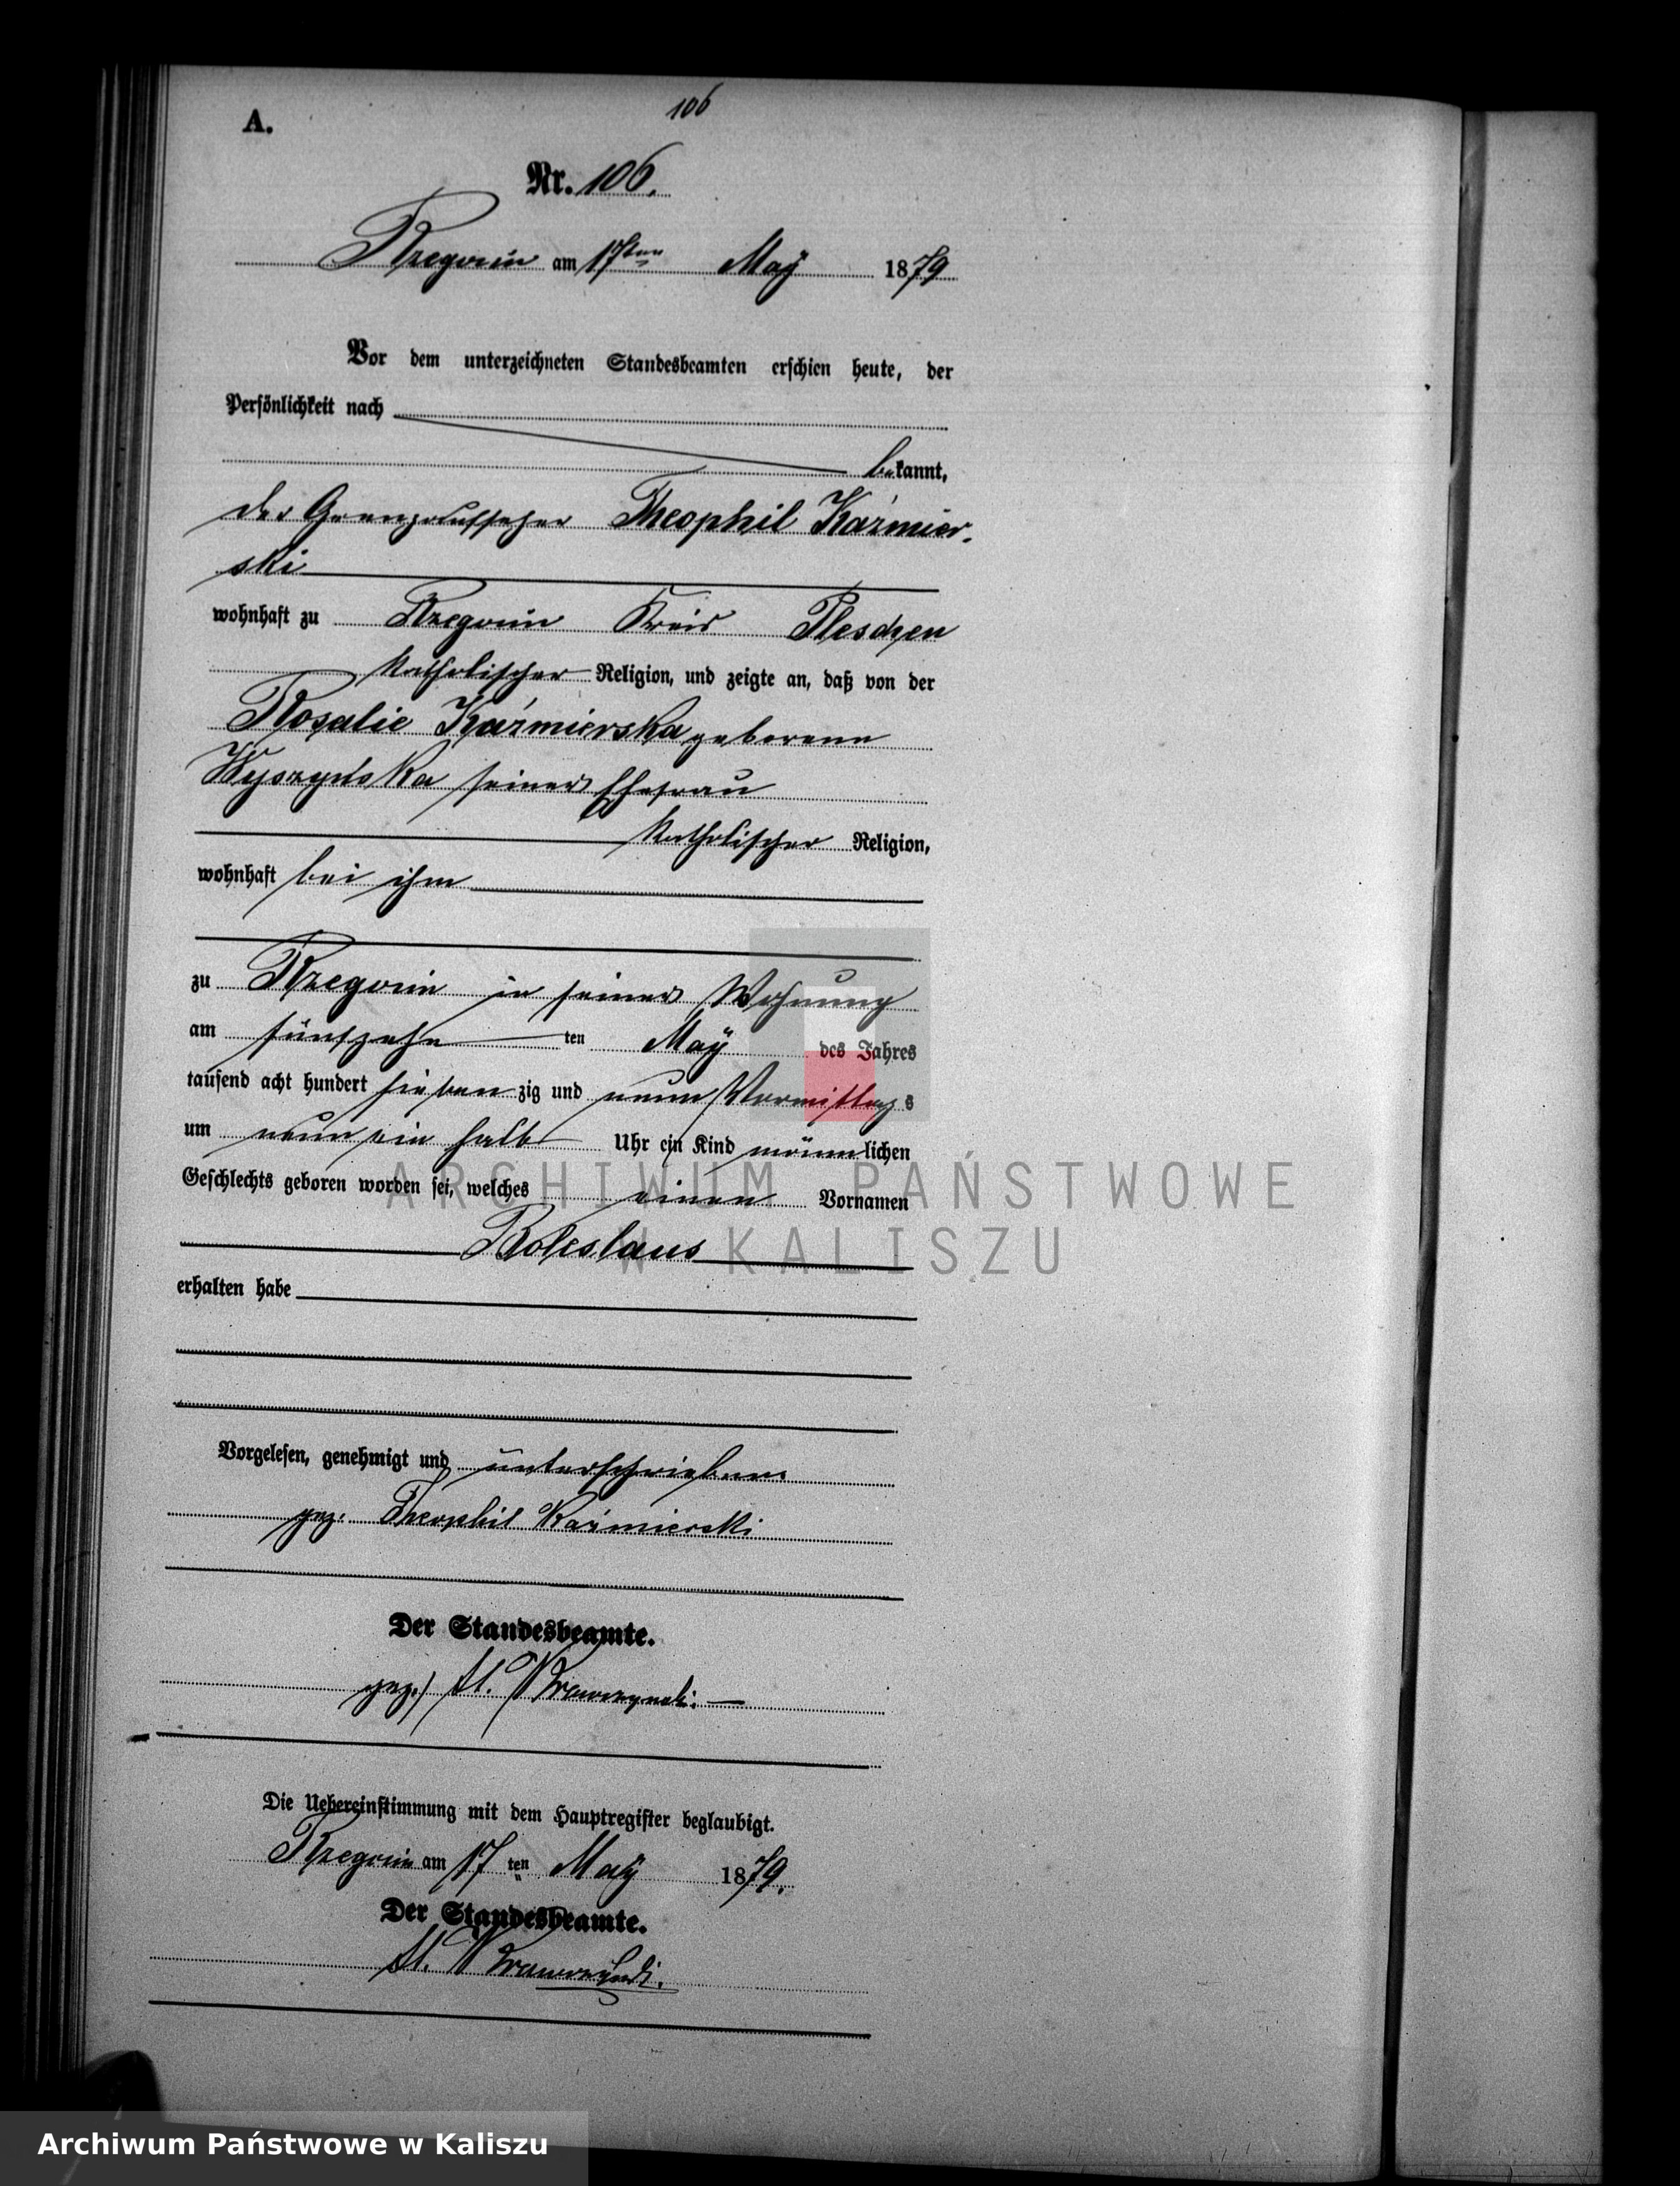 106
A.
Nr. 106.
Rzegocin am 17ten May 1879
Vor dem unterzeichneten Standesbeamten erschien heute, der
Persönlichkeit nach
bekannt,
der Grenzaufseher Theophil Kaźmier-
ski
wohnhaft zu Rzegocin Kreis Pleschen
katholischer Religion, und zeigte an, daß von der
Rosalie Kaźmierska geborene
Wyszyńska seiner Ehefrau
katholischer Religion,
wohnhaft bei ihm
zu Rzegocin in seiner Wohnung
am fünfzehn ten May des Jahres
tausend acht hundert sieben zig und neun Vormittags
um neun ein halb Uhr ein Kind männlichen
Geschlechts geboren worden sei, welches einen Vornamen
Boleslaus
erhalten habe
Vorgelesen, genehmigt und unterschrieben
gez. Theophil Kaźmierski
Der Standesbeamte.
gez.) St.
Die Uebereinstimmung mit dem Hauptregister beglaubigt.
Rzegocin am 17 ten May 1879.
Der Standesbeamte.
St.
ARCHIWUM PAŃSTWOWE
W KALISZU
Archiwum Państwowe w Kaliszu